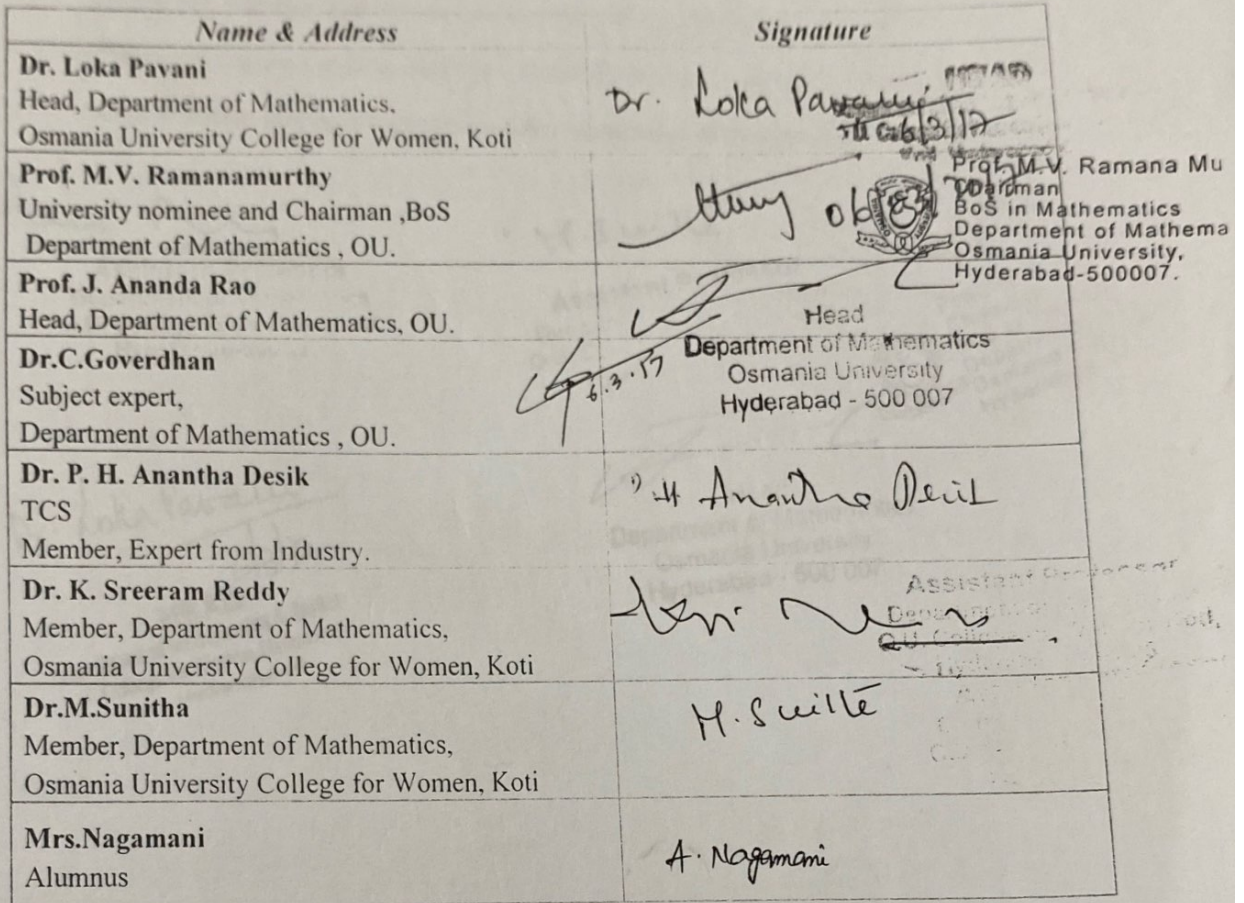 Name & Address Signature
Dr. Loka Pavani
Head, Department of Mathematics.
Osmania University College for Women, Koti
Dr. Loka Pavani
6/3/17
Prof. M.V. Ramanamurthy
University nominee and Chairman ,BoS
Department of Mathematics , OU.
Prof. M.V. Ramana Mu
Chairman
BoS in Mathematics
Department of Mathema
Osmania University,
Hyderabad-500007.
Prof. J. Ananda Rao
Head, Department of Mathematics, OU.
Head
Department of Mathematics
Osmania University
Hyderabad - 500 007
Dr.C.Goverdhan
Subject expert,
Department of Mathematics , OU.
6.3.17
Dr. P. H. Anantha Desik
TCS
Member, Expert from Industry.
H Anantha Desik
Dr. K. Sreeram Reddy
Member, Department of Mathematics,
Osmania University College for Women, Koti
Assistant Professor
Dr.M.Sunitha
Member, Department of Mathematics,
Osmania University College for Women, Koti
M.
Mrs.Nagamani
Alumnus
A. Nagamani